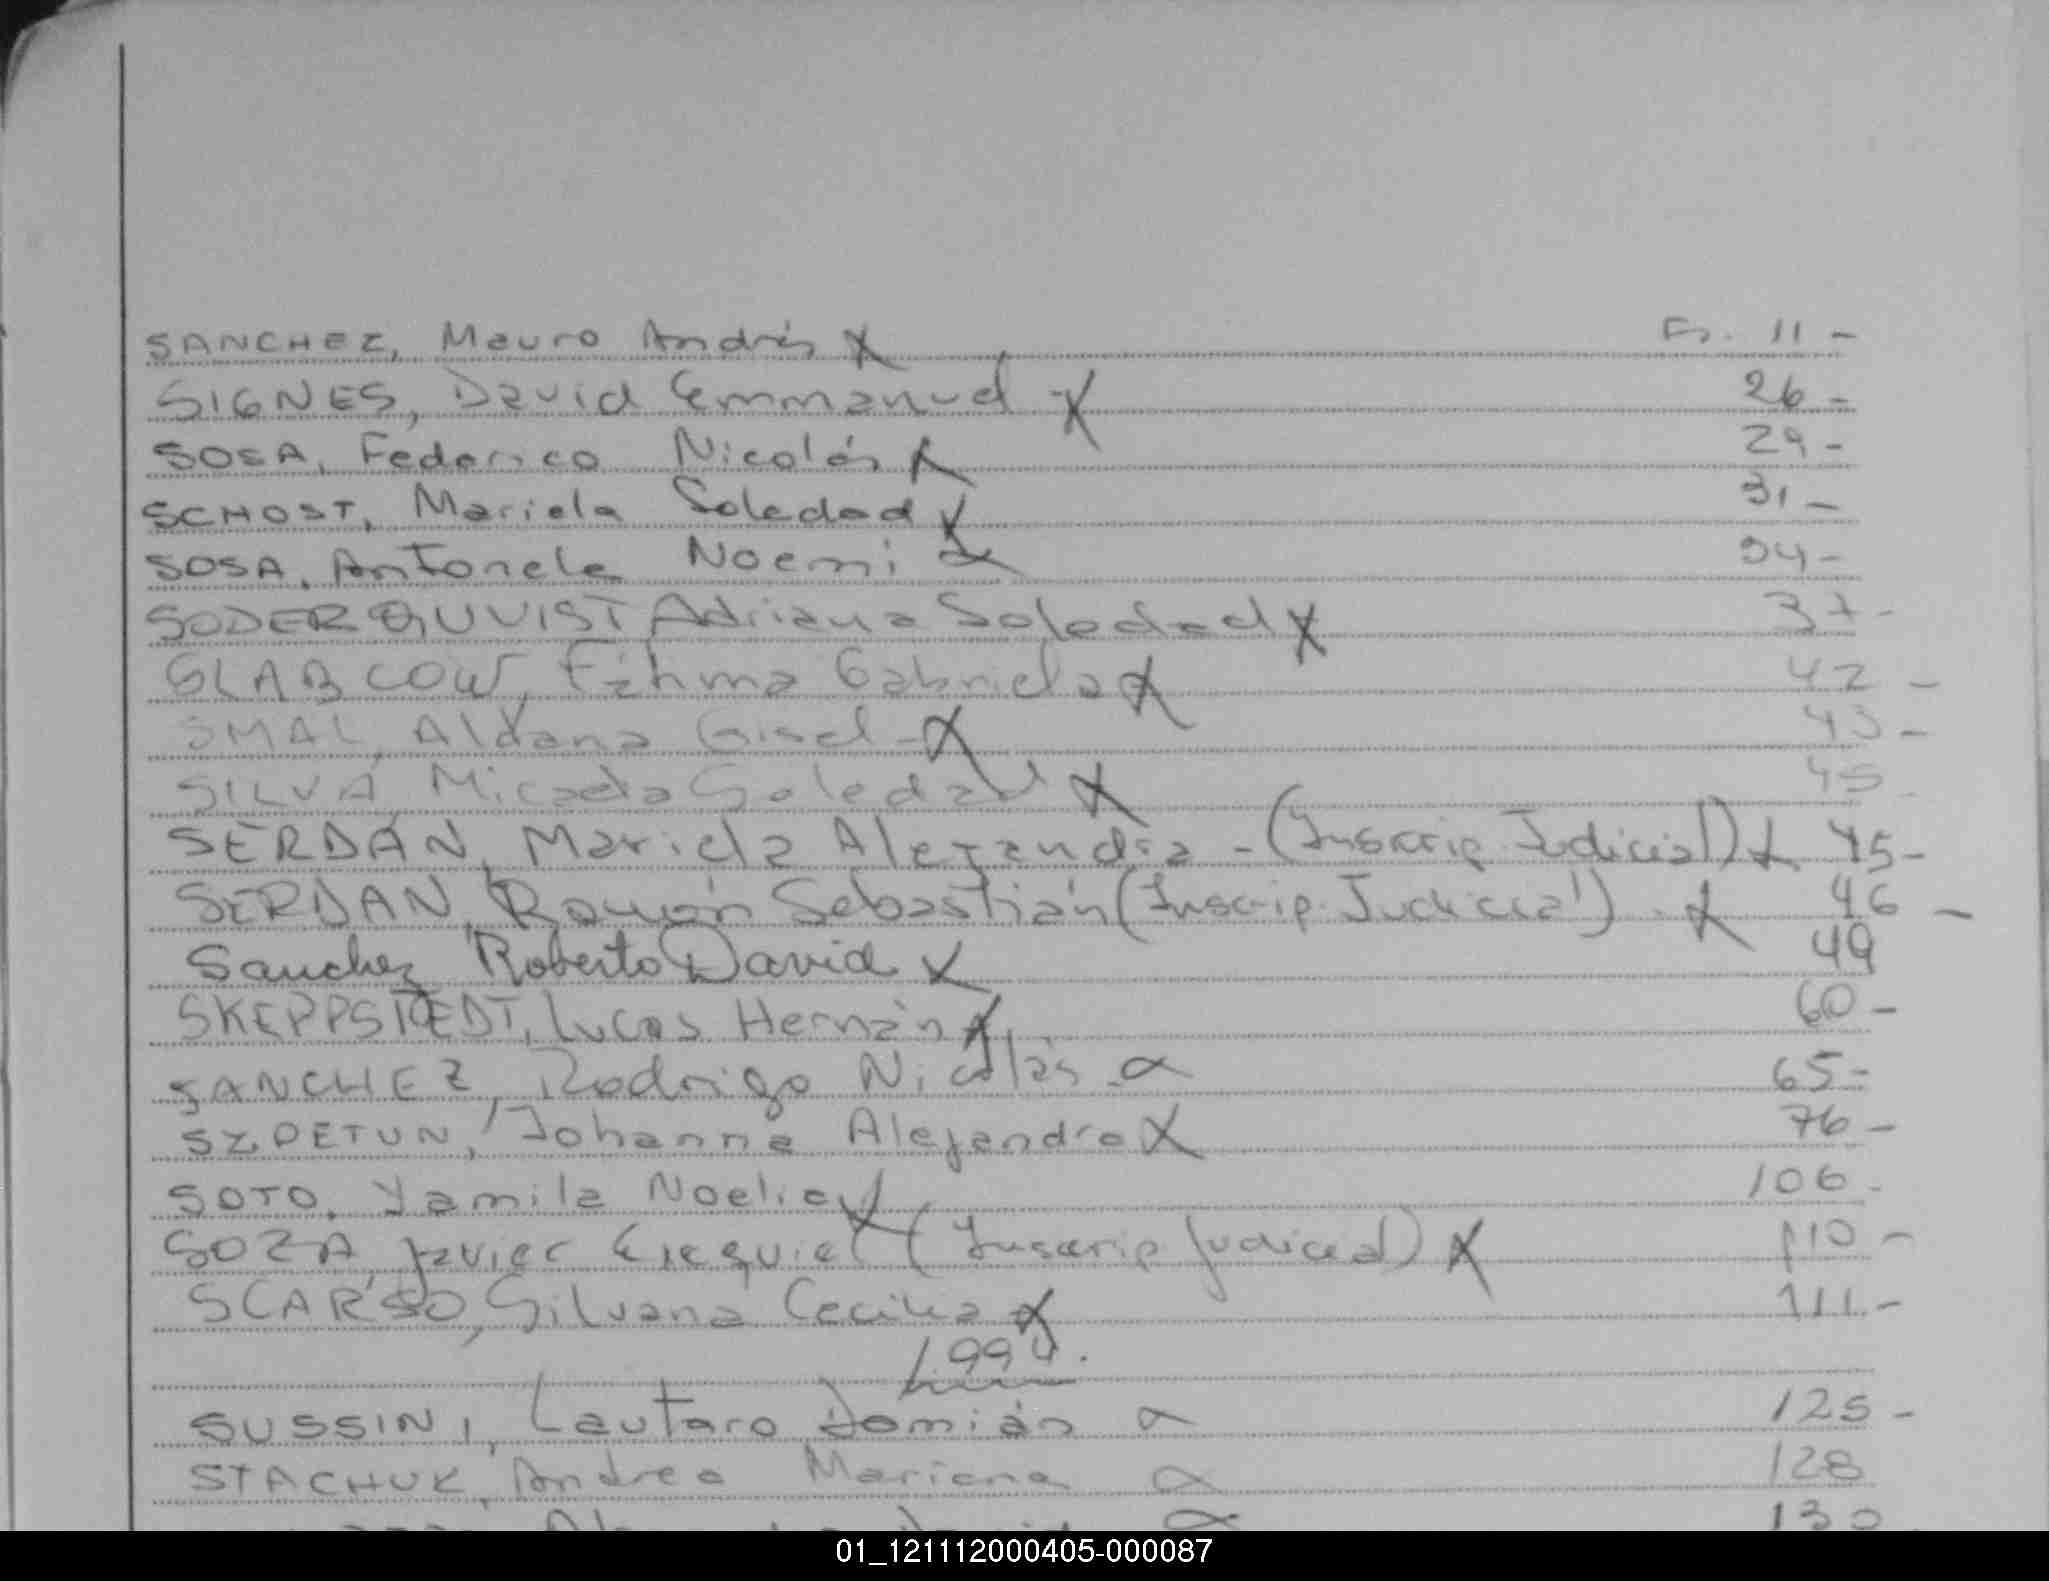 SANCHEZ, Mauro Andrés X Fs. 11 -
SIGNES, David Emmanuel - X 26 -
SOSA, Federico Nicolás X 29 -
SCHOST, Mariela Soledad X 31 -
SOSA, Antonela Noemi X 34 -
SODERQUVIST Adriana Soledad X 37 -
SLABCOW, Fátima Gabriela X 42 -
SMAL, Aldana Gisel - X 43 -
SILVA, Micaela Soledad X 45 -
SERDÁN, Mariela Alejandra - (Inscrip. Judicial) X 45 -
SERDAN, Ramón Sebastián (Inscrip. Judicial) X 46 -
Sanchez Roberto David X 49
SKEPPSTEDT, Lucas Hernán X 60 -
SANCHEZ, Rodrigo Nicolás X 65 -
SZPETUN, Johanna Alejandra X 76 -
SOTO, Yamila Noelia X 106 -
SOZA, Javier Exequiel (Inscrip Judicial) X 110 -
SCARSO, Silvana Cecilia X 111 -
1.990.
SUSSINI, Lautaro Damián X 125 -
STACHUK, Andrea Mariana X 128
130
01_121112000405-000087